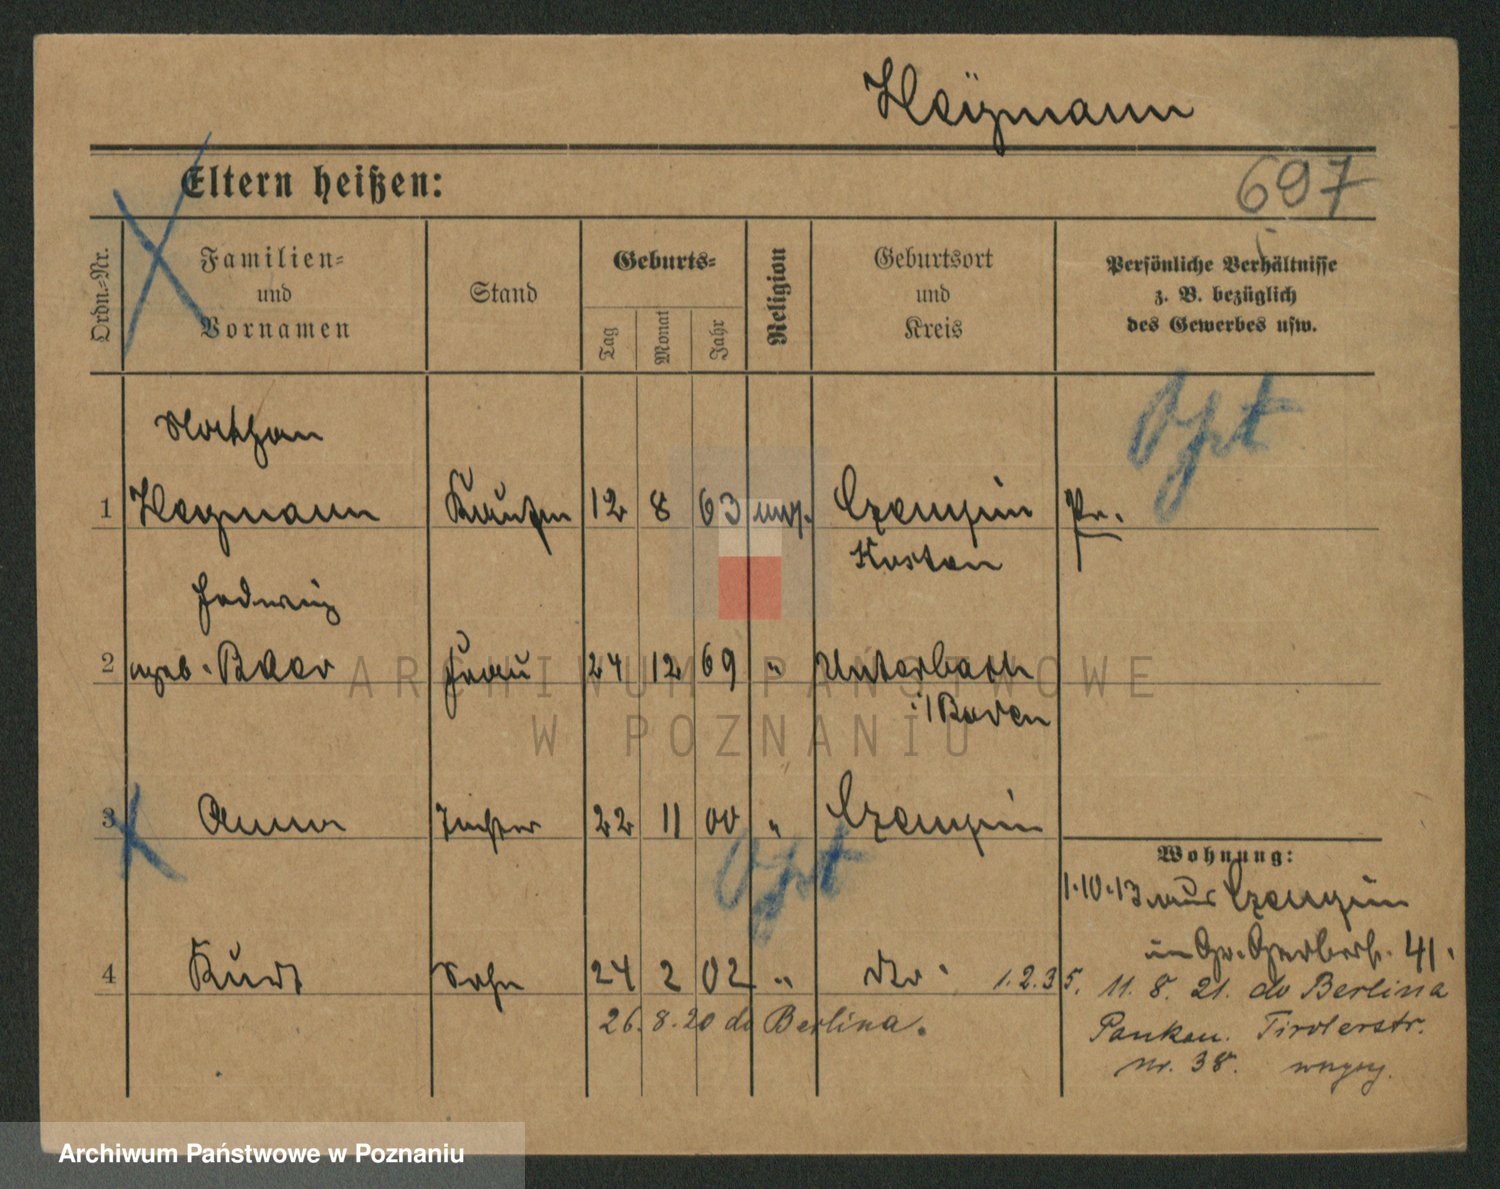 Heÿmann
Eltern heißen:
697
Ordn.-Nr.
Familien-
und
Vornamen
Stand
Geburts-
Tag
Monat
Jahr
Religion
Geburtsort
und
Kreis
Persönliche Verhältnisse
z. B. bezüglich
des Gewerbes usw.
Opt
Nathan
1 Heymann Kaufm 12 8 63 mos. Czempin Pr.
Kosten
Hedwig
2 geb. Baer Frau 24 12 69 " Unterbach
i/Baden
3 Anna Tochter 22 11 00 " Czempin
Opt
Wohnung:
1.10.13 aus Czempin
Gr. Gerberst. 41.
4 Kurt Sohn 24 2 02 " dto. 1.2.3 5. 11. 8. 21. do Berlina
26. 8. 20 do Berlina.
Pankau. Tirolerstr.
nr. 38.
ARCHIWUM PAŃSTWOWE
W POZNANIU
Archiwum Państwowe w Poznaniu